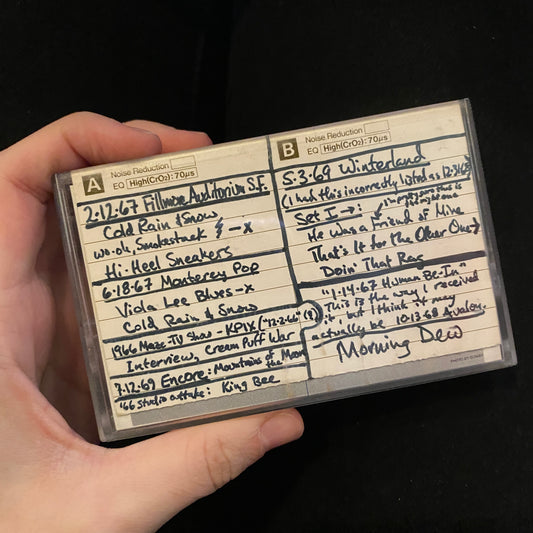 A
Noise Reduction
EQ High(CrO2): 70μs
2·12·67 Fillmore Auditorium S.F.
Cold Rain & Snow
Smokestack
Hi-Heel Sneakers
6-18-67 Monterey Pop
Viola Lee Blues-x
Cold Rain & Snow
1966 Maze TV Show - KPIX ("12-2-66" (?))
Interview, Cream Puff War
7·12·69 Encore: Mountains of the Moon
'66 Studio outtake: King Bee
B
Noise Reduction
EQ High(CrO2): 70μs
5·3·69 Winterland
(I had this incorrectly listed as
Set I →:
He Was a Friend of Mine
That's It for the Other One→
Doin' That Rag
"1·14·67 Human Be-In"
This is the way I received
it, but I think it may
actually be 10-13-68 Avalon.
Morning Dew